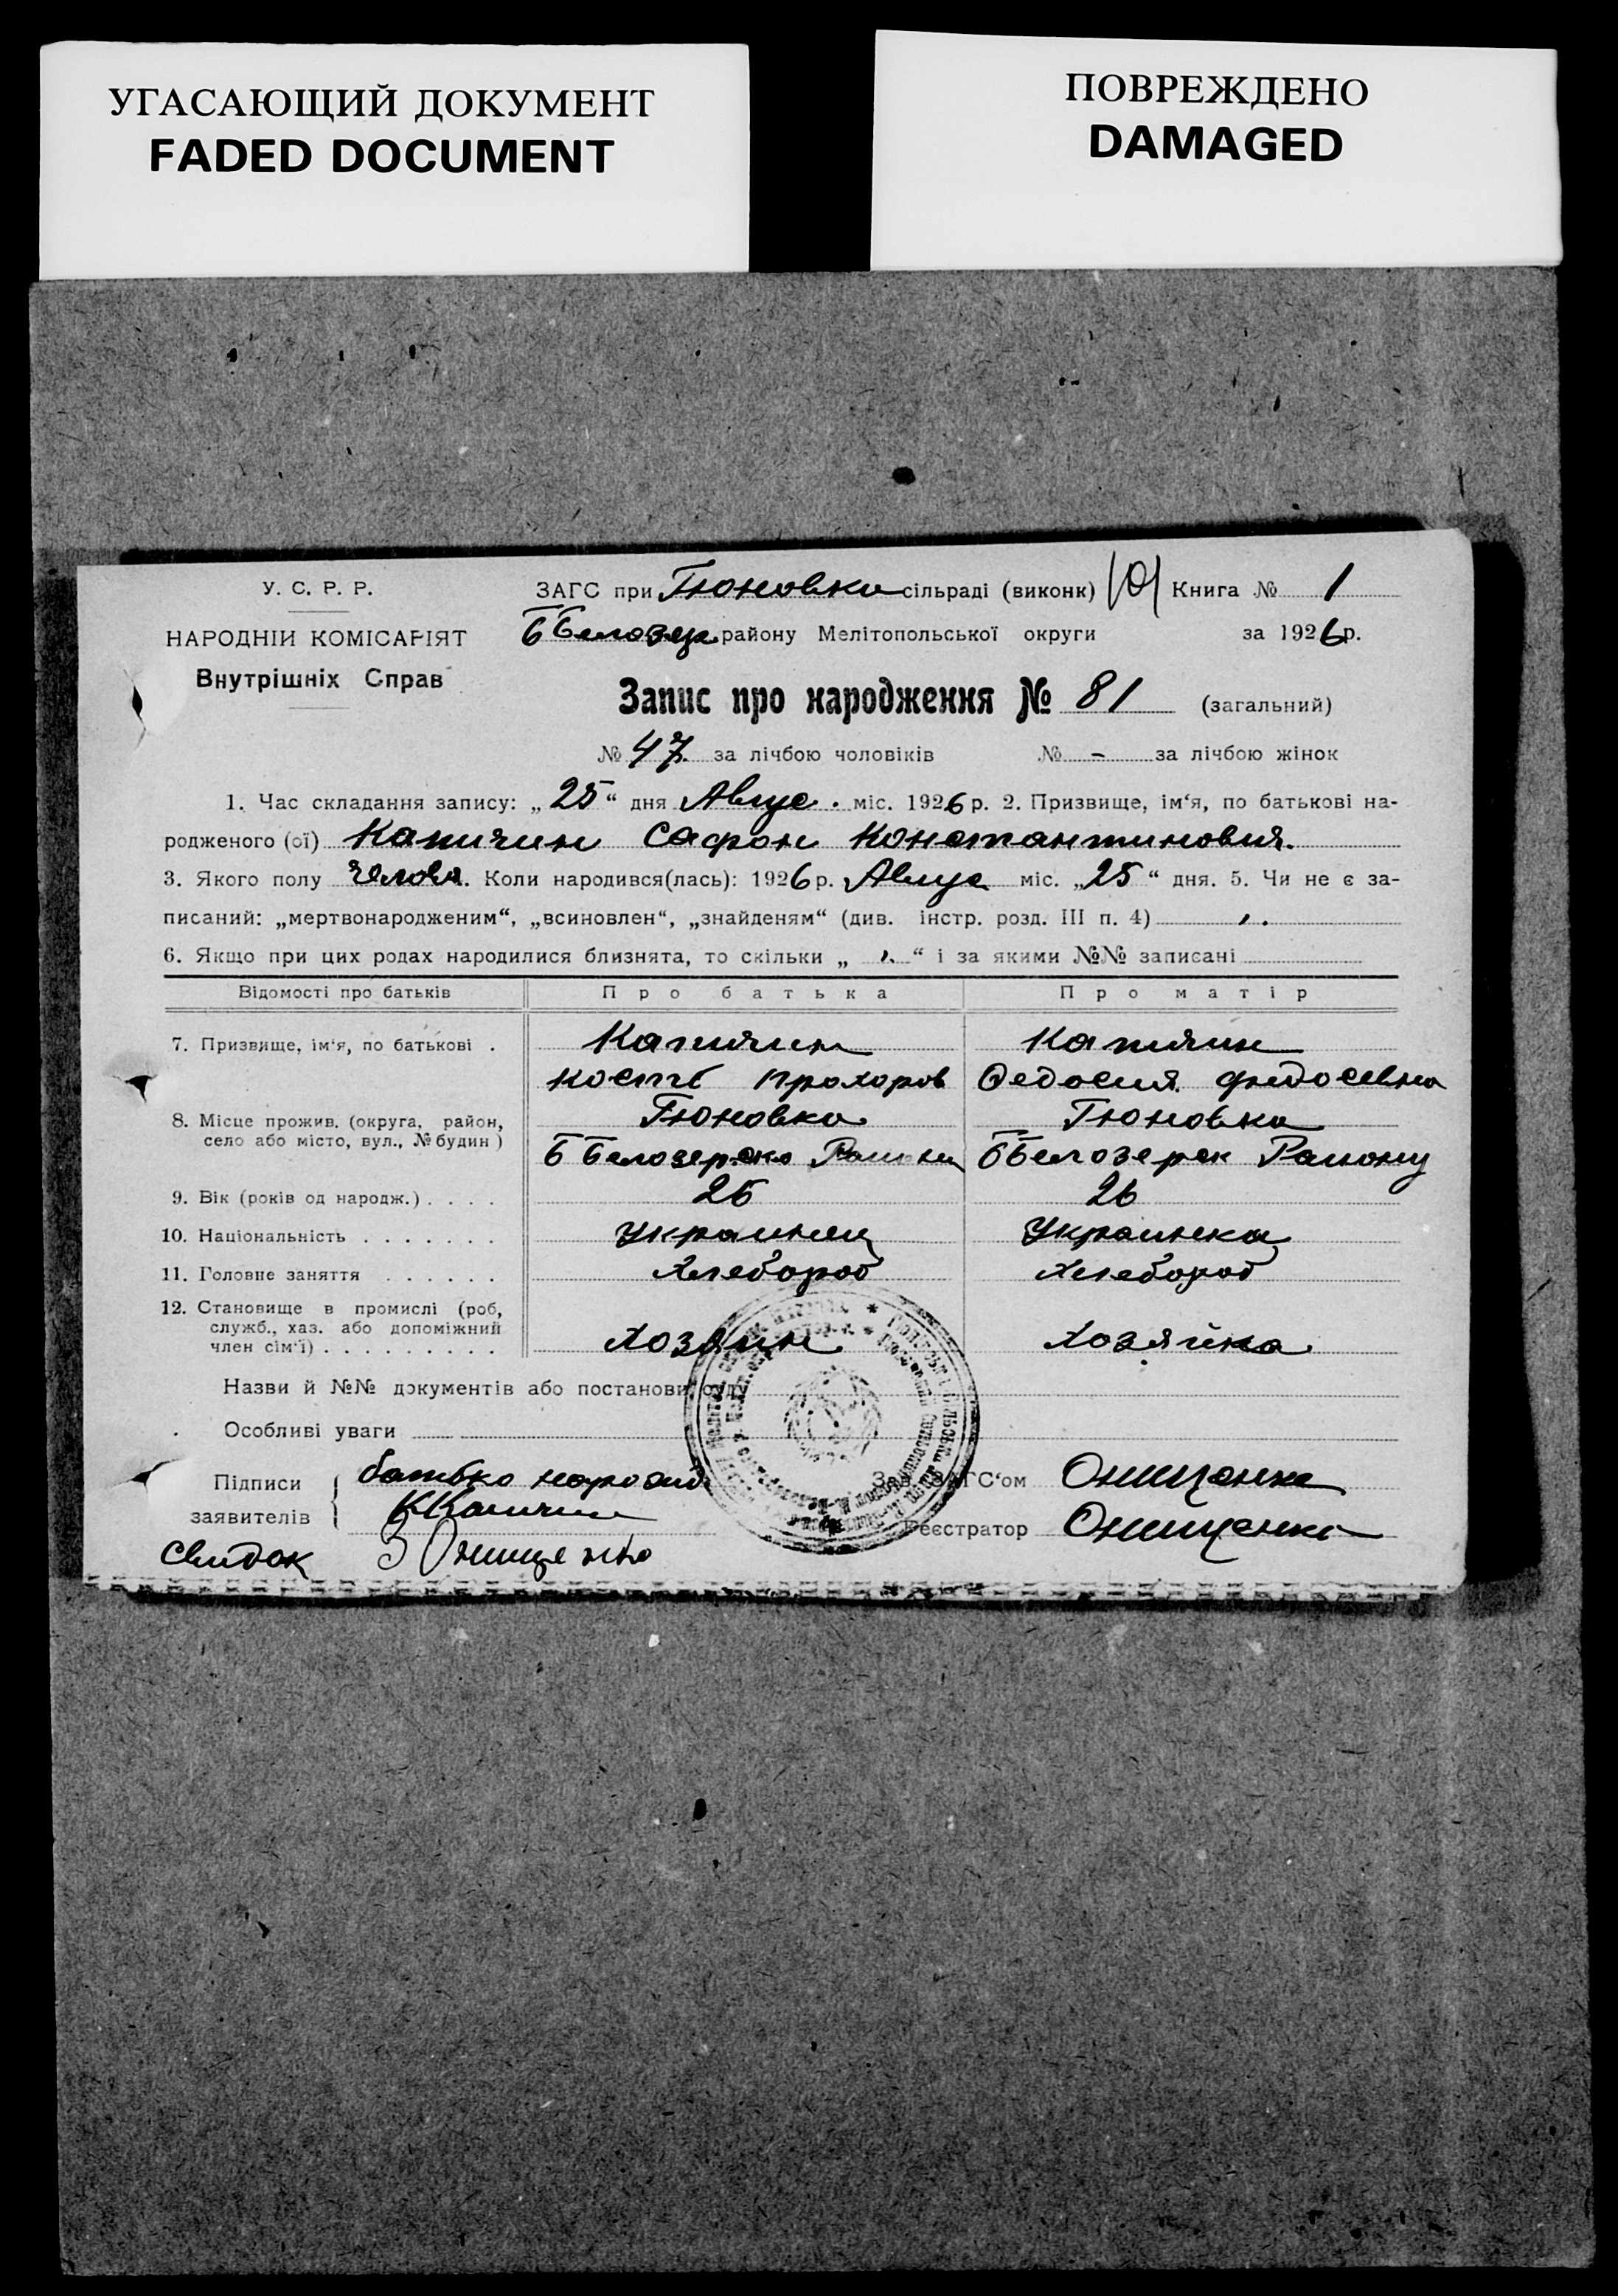 УГАСАЮЩИЙ ДОКУМЕНТ
FADED DOCUMENT
ПОВРЕЖДЕНО
DAMAGED
У. С. Р. Р.
НАРОДНІЙ КОМІСАРІЯТ
Внутрішніх Справ
ЗАГС при Гюновки сільраді (виконк) Книга № 1
Б Белозер. району Мелітопольської округи за 1926 р.
Запис про народження № 81 (загальний)
№ 47 за лічбою чоловіків № - за лічбою жінок
1. Час складання запису: „25" дня Авгус. міс. 1926 р. 2. Призвище, ім'я, по батькові на-
родженого (ої) Капичин Сафон Константинович.
3. Якого полу Челов. Коли народився(лась): 1926 р. Авгус міс. „25" дня. 5. Чи не є за-
писаний: „мертвонародженим", „всиновлен", „знайденям" (див. інстр. розд. III п. 4)
6. Якщо при цих родах народилися близнята, то скільки „ " і за якими №№ записані
Відомості про батьків Про батька Про матір
7. Призвище, ім'я, по батькові . Капичин Капичин
Кость Прохоров Федосия Федосевна
8. Місце прожив. (округа, район, село або місто, вул., № будин) Гюновка Гюновка
Б Белозерско Району Б Белозерск Району
9. Вік (років од народж.) . . . . 25 26
10. Національність . . . . . . . Украинец Украинка
11. Головне заняття . . . . . . Хлебороб Хлебороб
12. Становище в промислі (роб,
служб., хаз. або допоміжний
член сім'ї) . . . . . . . . . Хозяин Хозяйка
Назви й №№ документів або постанови суду
Особливі уваги
Підписи заявителів батько народив
К Капичин
Зав. ЗАГС'ом Онищенко
Реєстратор Онищенко
Свидок З Онищенко